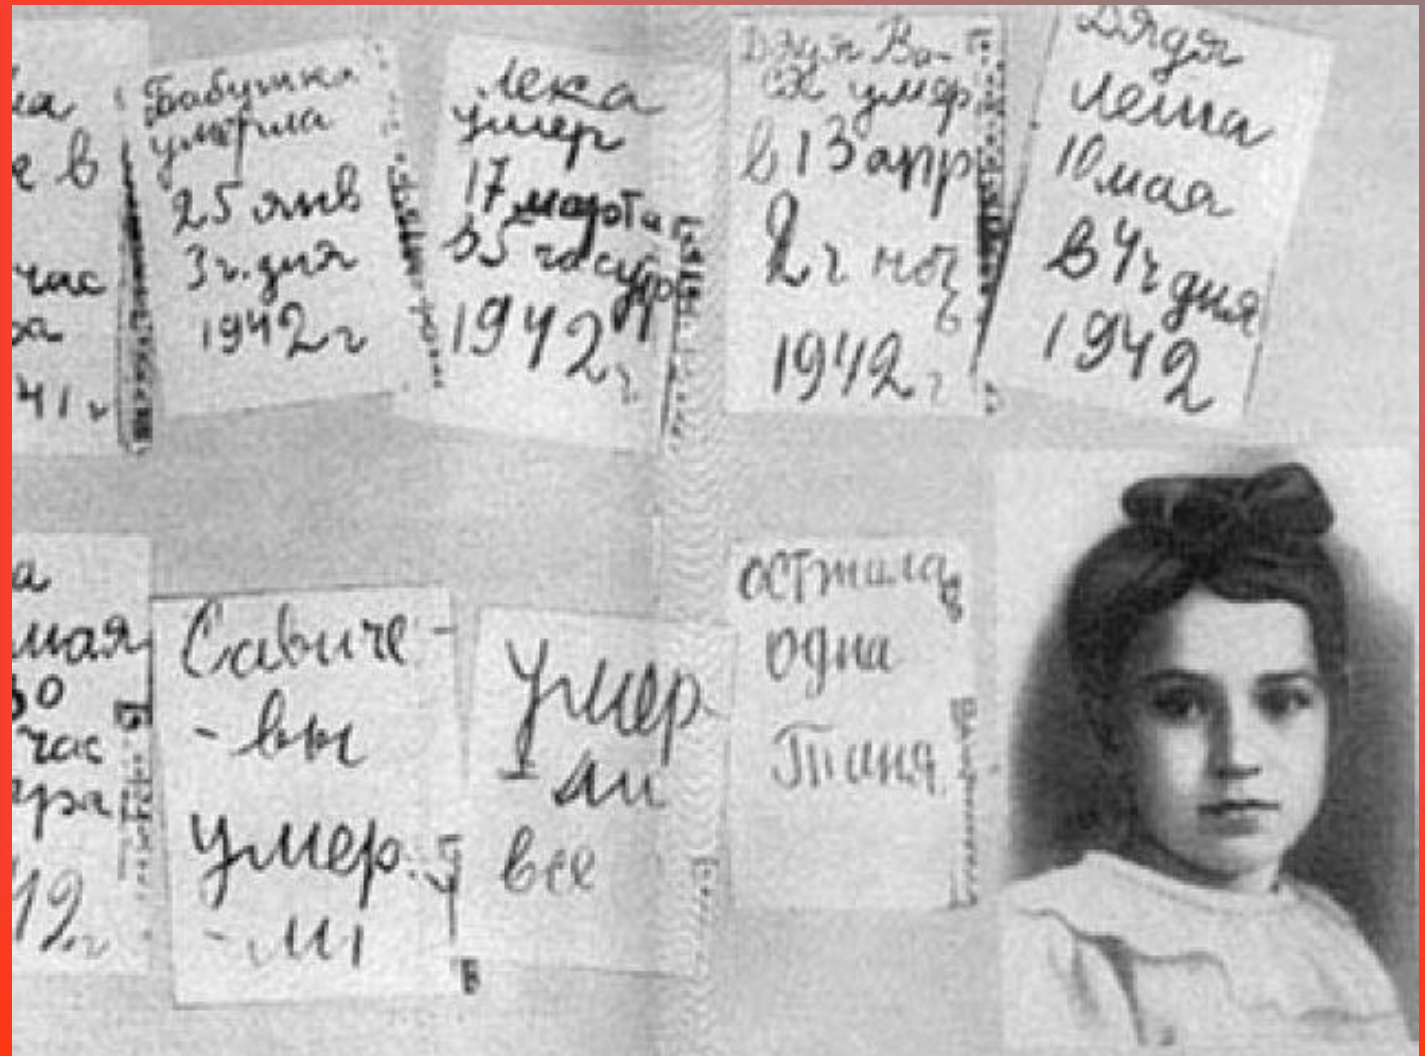 е в
час
41 г
Бабушка
умерла
25 янв
3 ч. дня
1942 г
Лека
умер
17 марта
в 5 час утр
1942 г
Дядя Ва-
ся умер
в 13 апр
2 ч ноч
ь
1942 г
Дядя
Леша
10 мая
в 4 ч дня
1942
а
мая
30
час
тра
42 г
Савиче-
-вы
умер.
-ли
Умер
-ли
все
осталась
одна
Таня